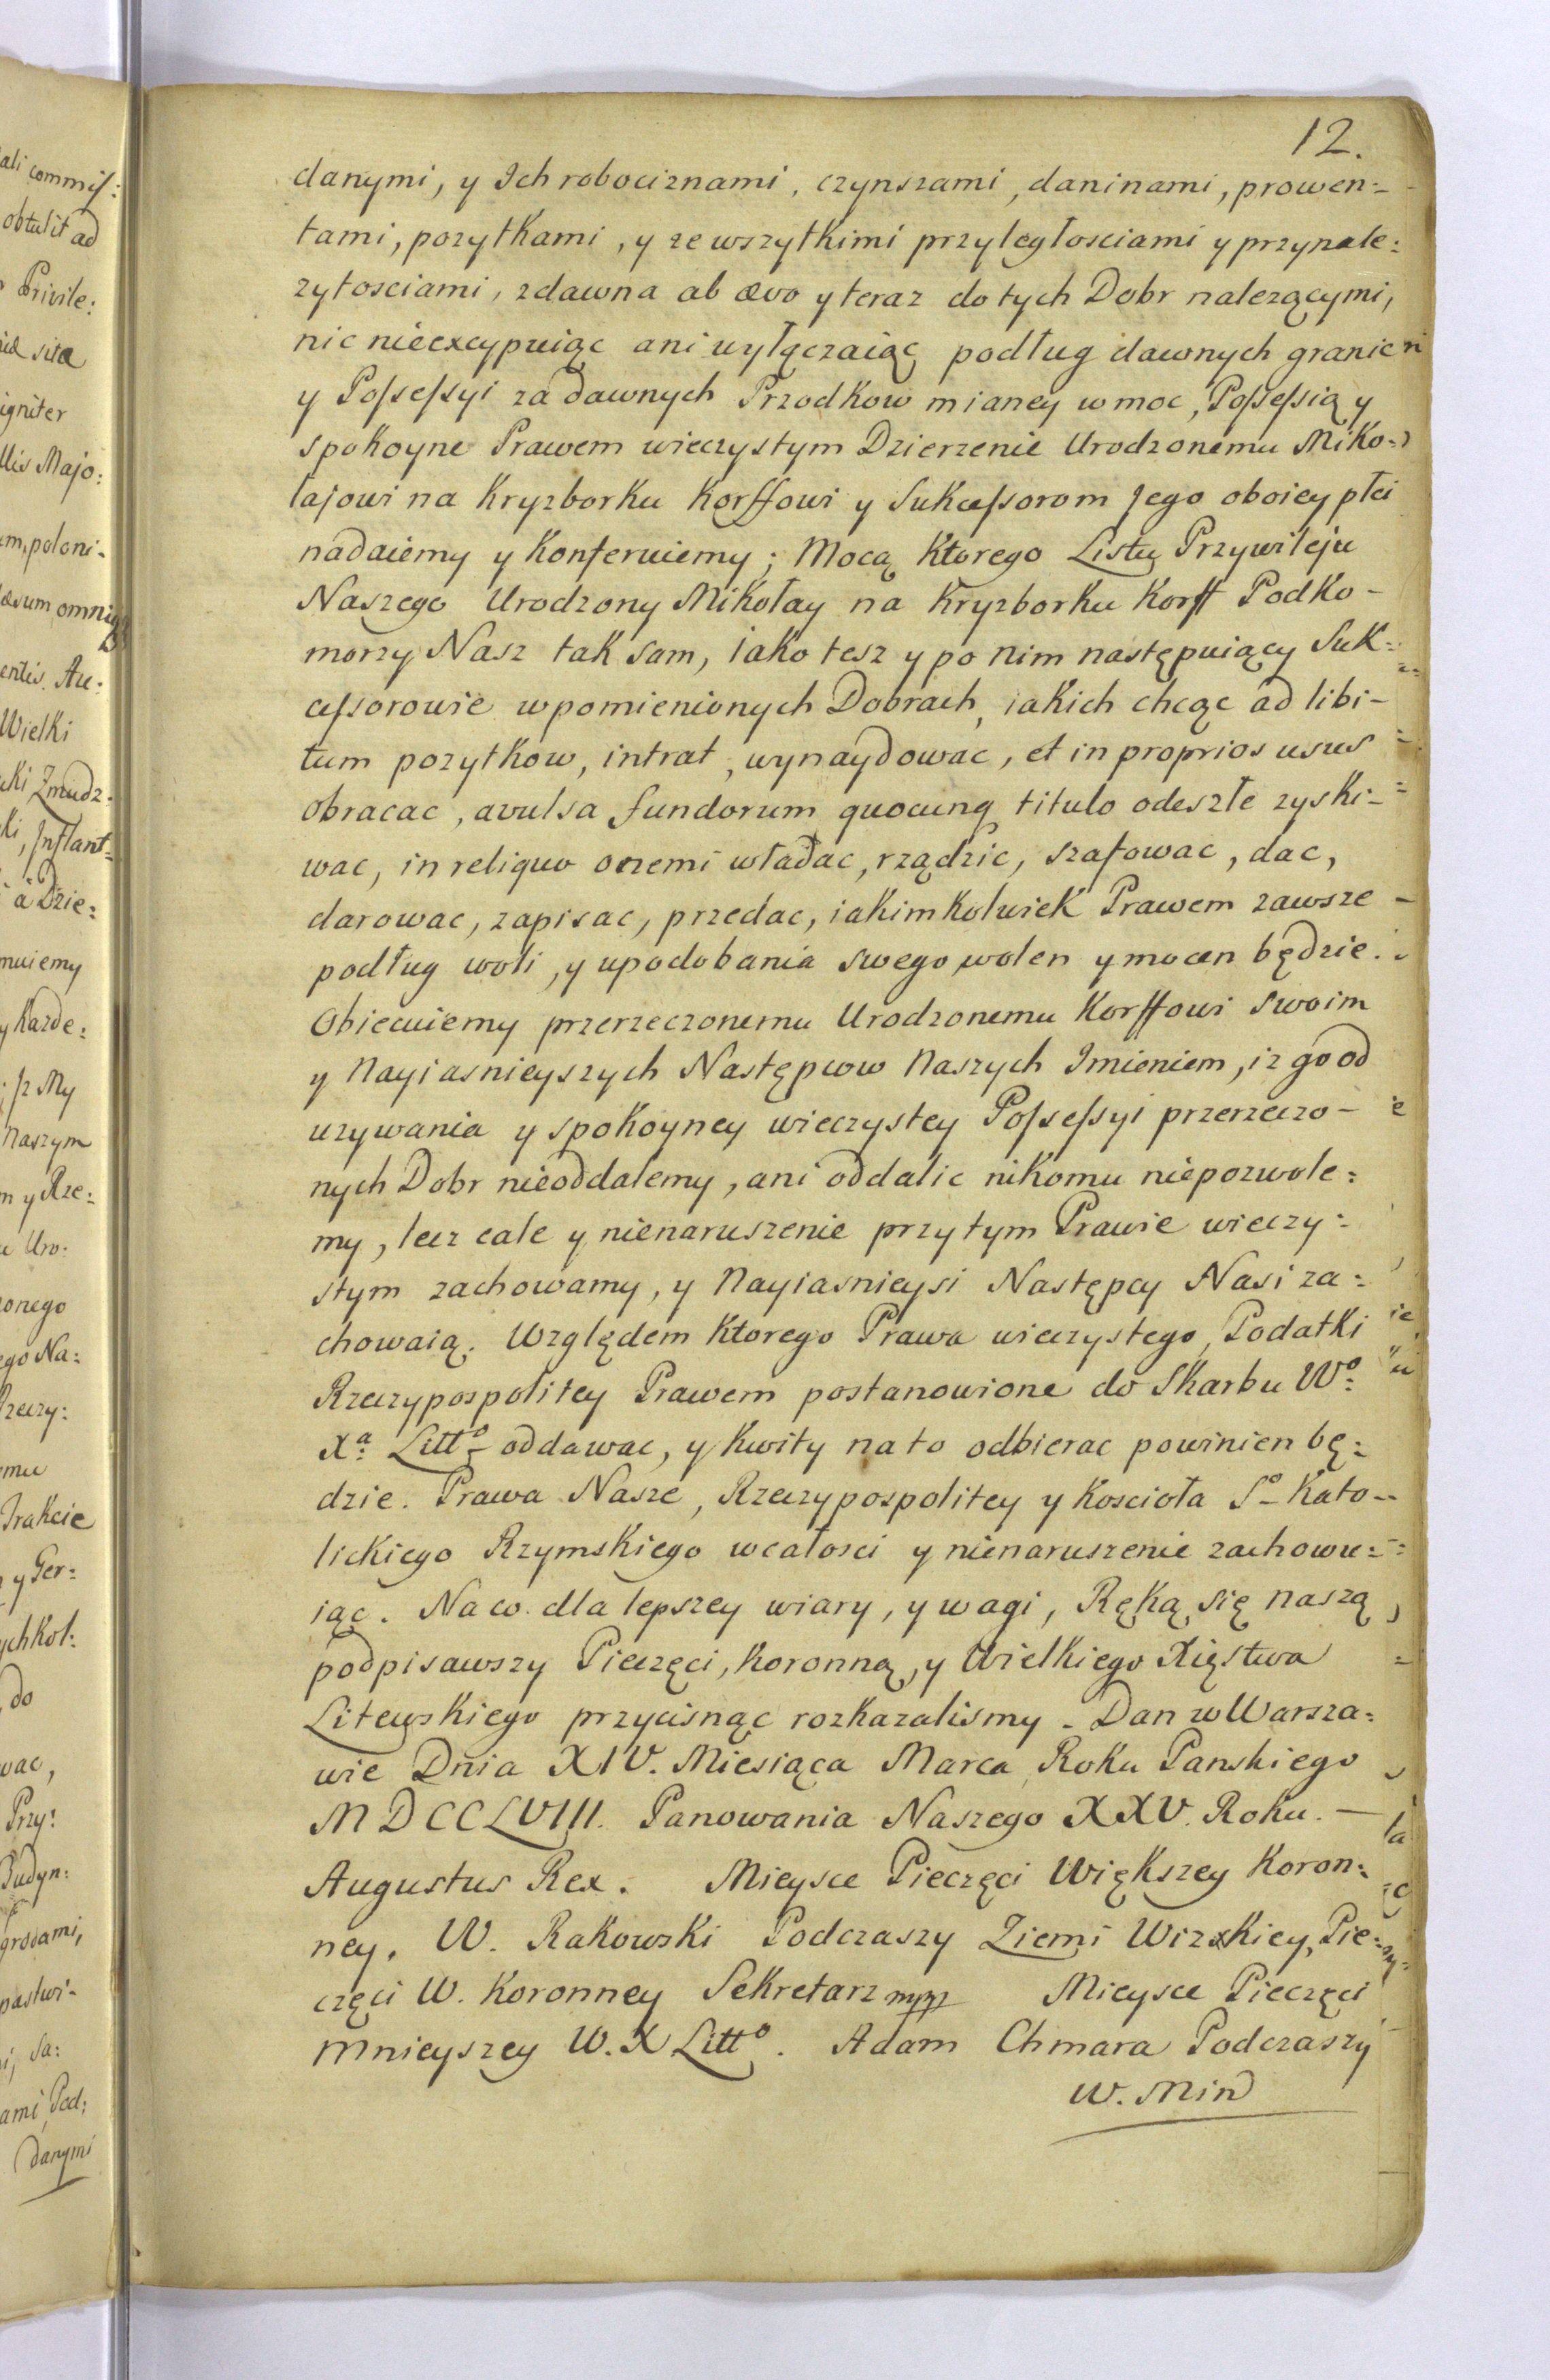 12.
danymi, y Ich robociznami, czynszami, daninami, prowen:
tami, pozytkami, y ze wszytkimi przyległosciami y przynale:
zytosciami, zdawna ab ævo y teraz do tych Dobr nalezącymi,
nic nieexcypuiąc ani wyłączaiąc podług dawnych granic
y Poſseſsyi za dawnych Przodkow mianey w moc, Poſseſsią y
spokoyne Prawem wieczystym Dzierzenie Urodzonemu Miko:
łajowi na Kryzborku Korffowi y Sukceſsorom Jego oboiey płci
nadaiemy y Konferuiemy; Mocą Ktorego Listu Przywileju
Naszego Urodzony Mikołay na Kryzborku Korff Podko-
morzy Nasz tak sam, iako tesz y po nim następuiący Suk:
ceſsorowie w pomienionych Dobrach, iakich chcąc ad libi-
tum pozytkow, intrat, wynaydowac, et in proprios usus
obracac, avulsa fundorum quocunq titulo odeszłe zyski-
wac, in reliquo onemi władac, rządzic, szafowac, dac,
darowac, zapisac, przedac, iakimkolwiek Prawem zawsze
podług woli, y upodobania swego wolen y mocen będzie.
Obiecuiemy przerzeczonemu Urodzonemu Korffowi Swoim
y Nayiasnieyszych Następcow Naszych Imieniem, iz go od
uzywania y spokoyney wieczystey Poſseſsyi przerzeczo-
nych Dobr nieoddalemy, ani oddalic nikomu niepozwole:
my, lecz cale y nienaruszenie przy tym Prawie wieczy:
stym zachowamy, y Nayiasnieysi Następcy Nasi za:
chowaią. Względem Ktorego Prawa wieczystego, Podatki
Rzeczypospolitey Prawem postanowione do Skarbu Wº
Xª Littº oddawac, y kwity na to odbierac powinien bę:
dzie. Prawa Nasze, Rzeczypospolitey y Koscioła Sº Kato-
lickiego Rzymskiego w całosci y nienaruszenie zachowu:
iąc. Na co dla lepszey wiary, y wagi, Ręką się naszą
podpisawszy Pieczęci, Koronną, y Wielkiego Xięstwa
Litewskiego przycisnąc rozkazalismy. Dan w Warsza:
wie Dnia XIV. Miesiąca Marca Roku Panskiego
MDCCLVIII. Panowania Naszego XXV. Roku. —
Augustus Rex. Mieysce Pieczęci Większey Koron:
ney. W. Rakowski Podczaszy Ziemi Wizkiey, Pie:
częci W. Koronney Sekretarz mpp Mieysce Pieczęci
Mnieyszey W. X Littº. Adam Chmara Podczaszy
W. Min